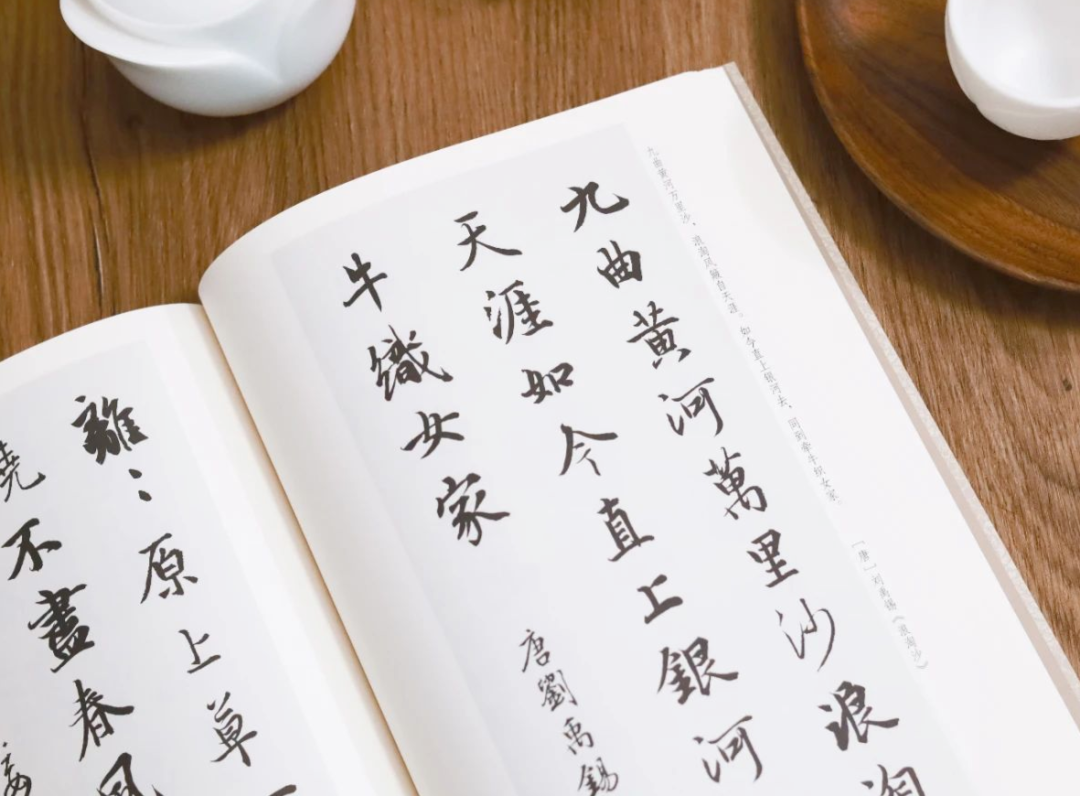 九曲黄河万里沙，浪淘风簸自天涯。如今直上银河去，同到牵牛织女家。
〔唐〕刘禹锡《浪淘沙》
九曲黃河萬里沙浪淘
天涯如今直上銀河
牛織女家
唐劉禹錫
離〻原上草一
燒不盡春風